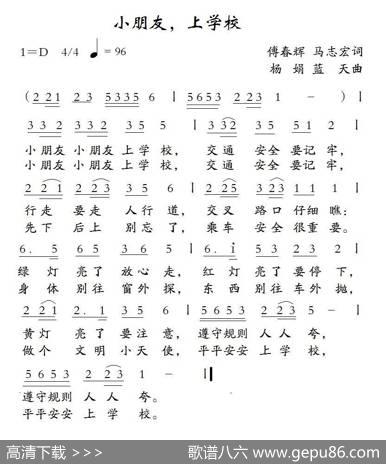 小朋友，上学校
1=D 4/4 ♩= 96 傅春辉 马志宏词
杨 娟 蓝 天曲
( 2 221 2 3 5335 6 | 5653 223 1 - ) |
3 32 3 32 3 5 5 | 3 32 3 5 3 5 2 |
小朋友 小朋友 上学校， 交通 安全 要记 牢，
小朋友 小朋友 上学校， 交通 安全 要记 牢，
2 2 1 2 2 3 3 5 6 | 2 25 323 1 1 1 |
行走 要走 人行道， 交叉 路口 仔细 瞧：
先下 后上 别忘了， 乘车 安全 很重要。
6. 5 6 5 3 6 5 | 6. 1 5 3 2 3 2 |
绿 灯 亮了 放心 走， 红 灯 亮了 要停 下，
身 体 别往 窗外 探， 东 西 别往 车外 抛，
2 21 2 2 3 5 3 6 | 5653 2 23 1 - |
黄灯 亮了 要注 意， 遵守规则 人人 夸，
做个 文明 小天 使， 平平安安 上学 校，
5653 2 23 1 - ‖
遵守规则 人人 夸。
平平安安 上学 校。
高清下载 >>> 歌谱八六 www.gepu86.com